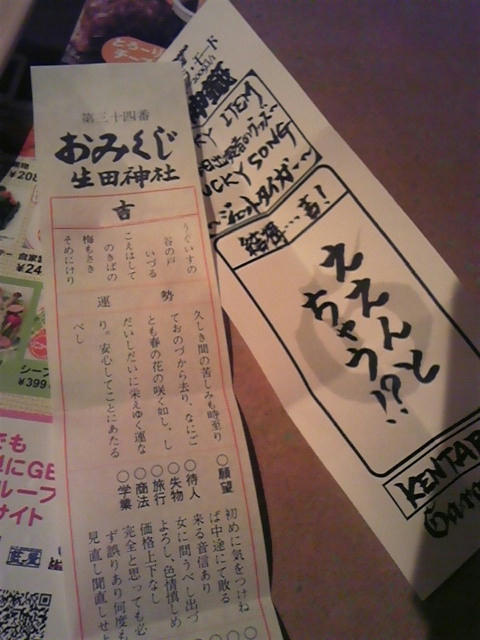 第三十四番
おみくじ
生田神社
吉
うぐいすの
谷の戸
いづる
こえはして
のきばの
梅もさき
そめにけり
運勢
久しき間の苦しみも時至り
ておのづから去り、なにご
とも春の花の咲く如し、し
だいしだいに栄えゆく運な
り。安心してことにあたる
べし
○願望
初めに気をつけね
ば中途にて敗る
○待人
来る音信あり
○失物
女に問うべし出づ
○旅行
よろし、色情慎しめ
○商法
価格上下なし
○学業
完全と思っても必
ず誤りあり何度も
見直し聞直しせよ
モード
ITEM
LUCKY SONG
〜ジェットタイガー〜
結果…吉!
ええんと
ちゃう!?
KENTAR
¥208
¥24
¥399
シーフ
でも
ループ
サイト